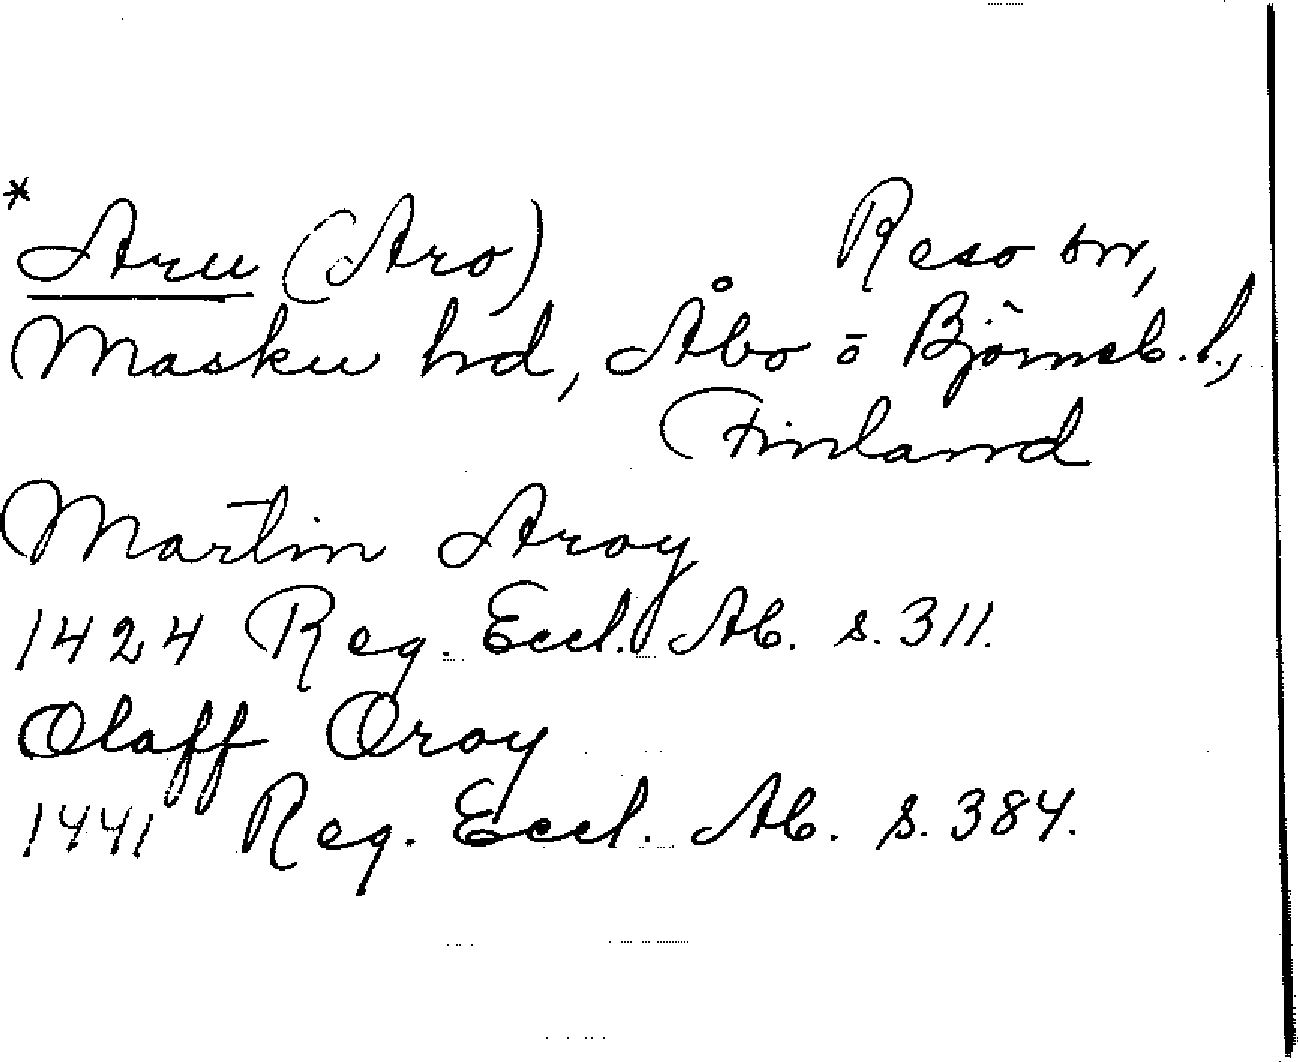 * Aru (Aro) Reso sn,
Masku hd, Åbo o Björneb. l.,
Finland
Martin Aroy
1424 Reg. Eccl. Ab. s. 311.
Olaff Oroy
1441 Reg. Eccl. Ab. s. 384.